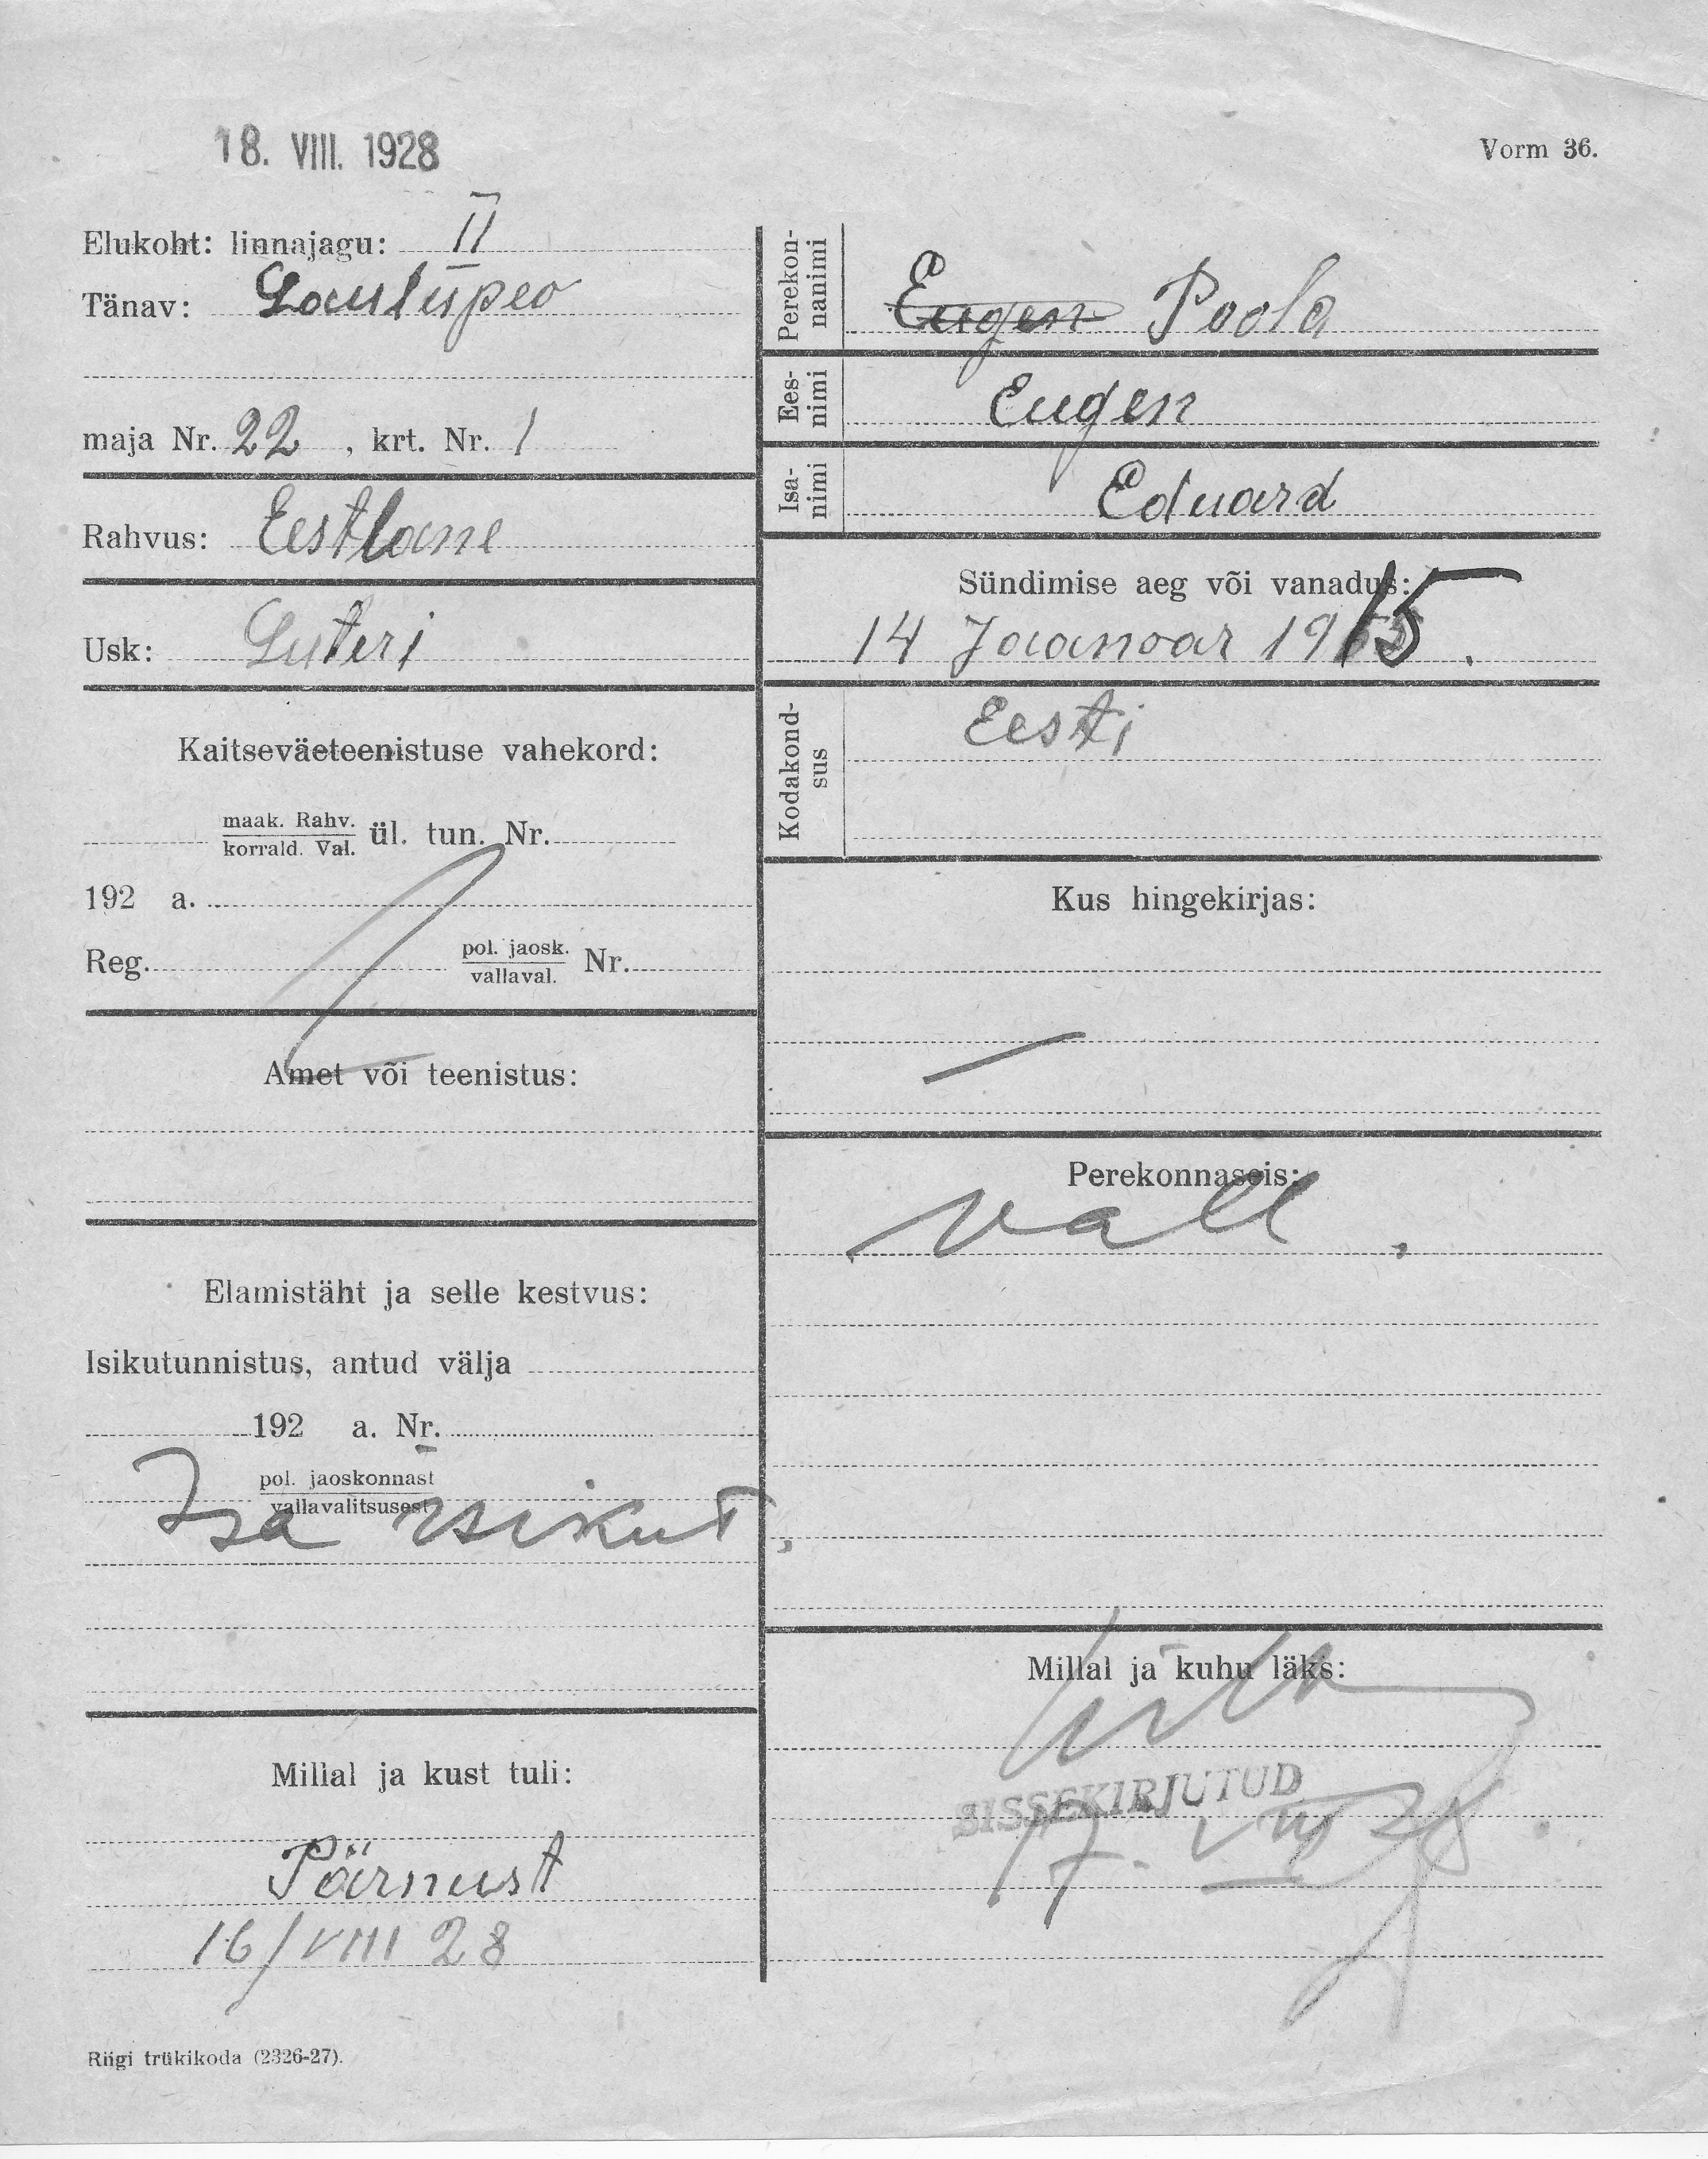 18. VIII. 1928
Vorm 36.
Elukoht: linnajagu: II
Tänav: Laulupeo
maja Nr. 22, krt. Nr. 1
Rahvus: Eestlane
Usk: Luteri
Kaitseväeteenistuse vahekord:
maak. Rahv.
korrald. Val. ül. tun. Nr.
192 a.
Reg. pol. jaosk.
vallaval. Nr.
Amet või teenistus:
Elamistäht ja selle kestvus:
Isikutunnistus, antud välja
192 a. Nr.
pol. jaoskonnast
vallavalitsusest
Isa isikut,
Millal ja kust tuli:
Pärnust
16/VIII 28
Riigi trükikoda (2326-27).
Perekon-
nanimi Eugen Poola
Ees-
nimi Eugen
Isa-
nimi Eduard
Sündimise aeg või vanadus:
14 Jaanoar 1915.
Kodakond-
sus Eesti
Kus hingekirjas:
Perekonnaseis:
vall.
Millal ja kuhu läks:
SISSEKIRJUTUD
17. VIII 28